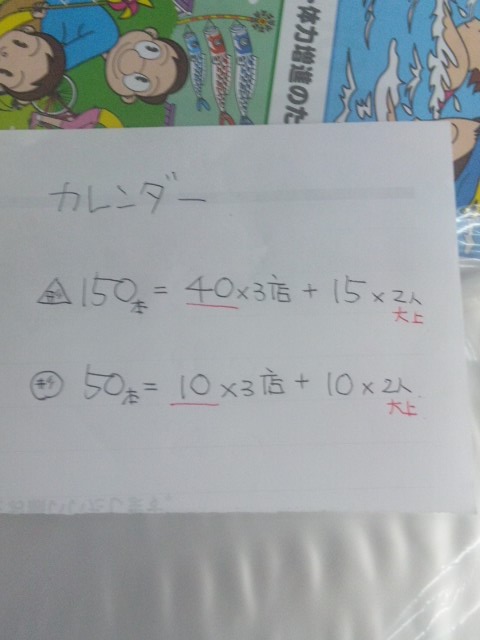 ・体力増進のた
カレンダー
150本 = 40×3店 + 15×2人
大上
50本 = 10×3店 + 10×2人
大上